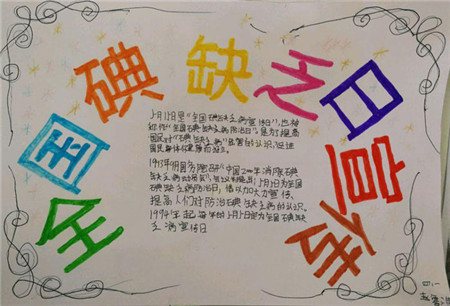 全国碘缺乏日宣传
5月5日是"全国碘缺乏病宣传日",也被
称作"全国碘缺乏病防治日"。是为了提高
国民对"碘缺乏病"危害的认识,促进
国民身体
1993年 国务院召开"中国2000年消除碘
缺乏病动员会",会议提出,5月5日为全国
碘缺乏病防治日,借以加大力宣传、
提高人们对防治碘缺乏病的认识。
1994年起每年的5月5日定为全国碘缺
乏病宣传日